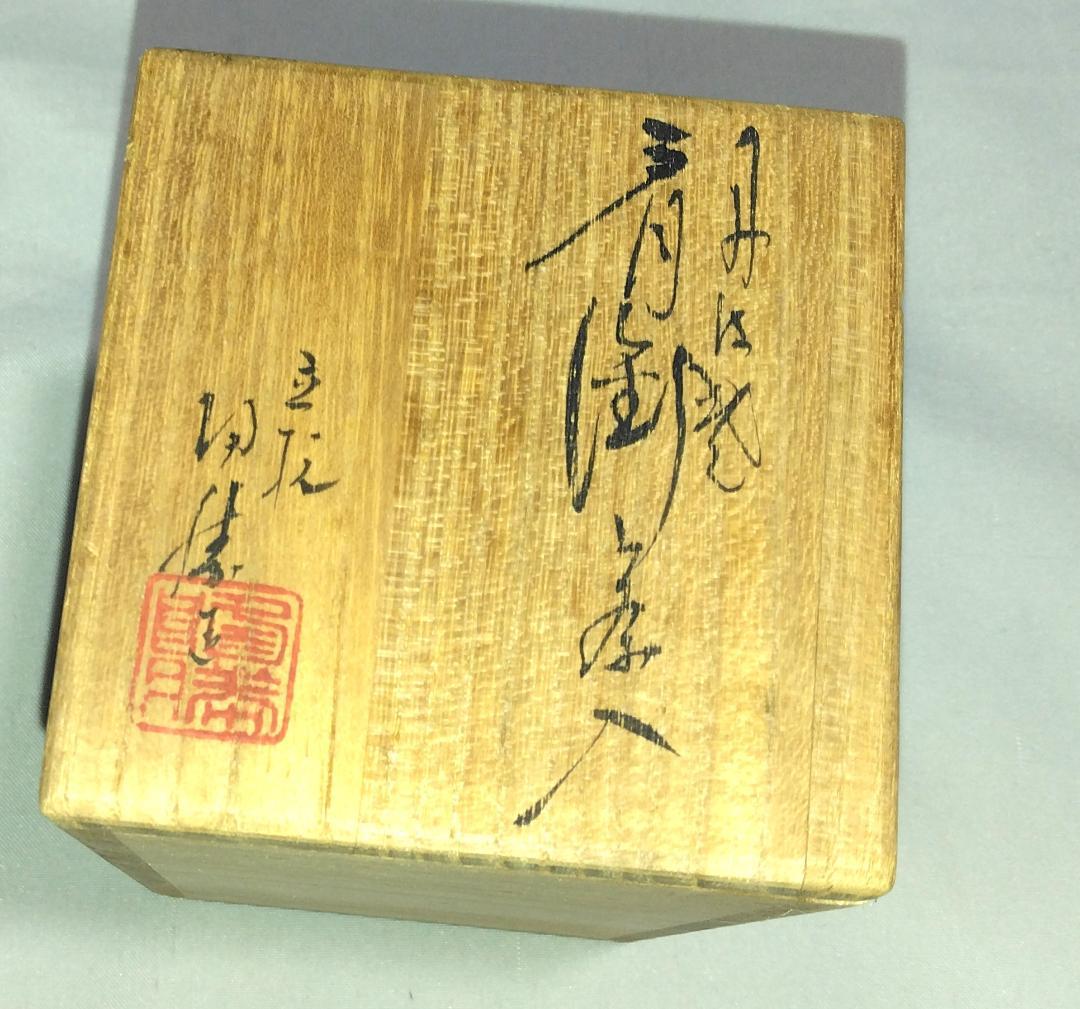 丹波焼
肩衝茶入
立杭
陶勝